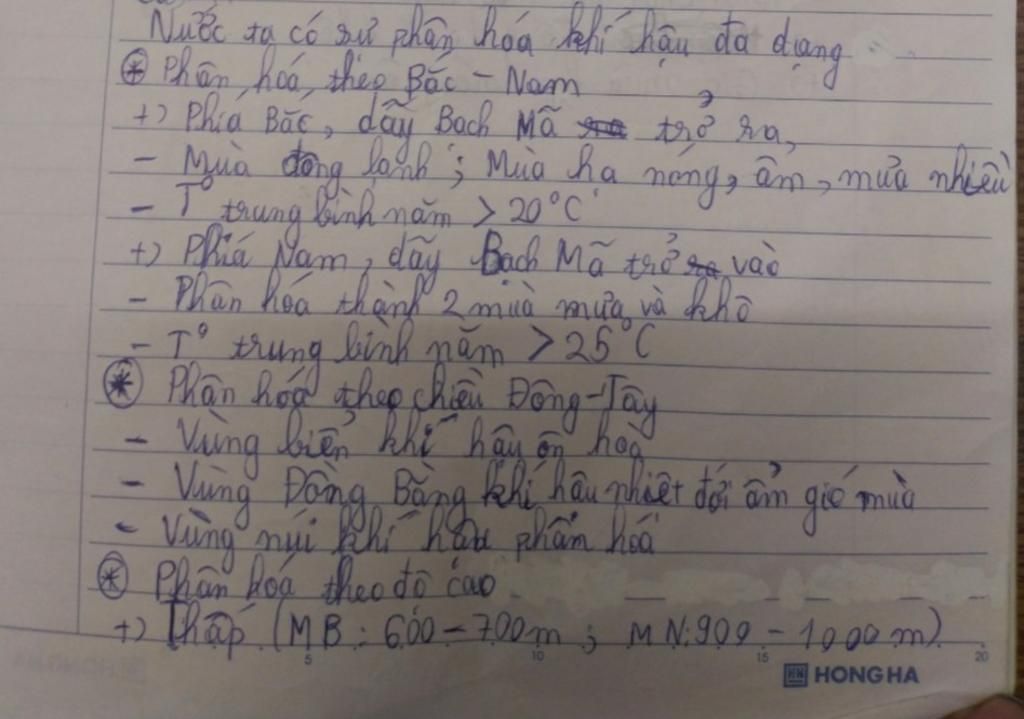 Nước ta có sự phân hoá khí hậu đa dạng
* Phân hoá theo Bắc - Nam
+) Phía Bắc, dãy Bạch Mã trở ra,
- Mùa đông lạnh ; Mùa hạ nóng, ẩm, mưa nhiều
- T° trung bình năm > 20°C
+) Phía Nam, dãy Bạch Mã trở vào
- Phân hóa thành 2 mùa mưa và khô
- T° trung bình năm > 25°C
* Phân hoá theo chiều Đông - Tây
- Vùng biển khí hậu ôn hoà
- Vùng Đồng Bằng khí hậu nhiệt đới ẩm gió mùa
- Vùng núi khí hậu phân hoá
* Phân hoá theo độ cao
+) Thấp (MB : 600 - 700m ; MN: 900 - 1000m)
5 10 15 20
HH HONG HA